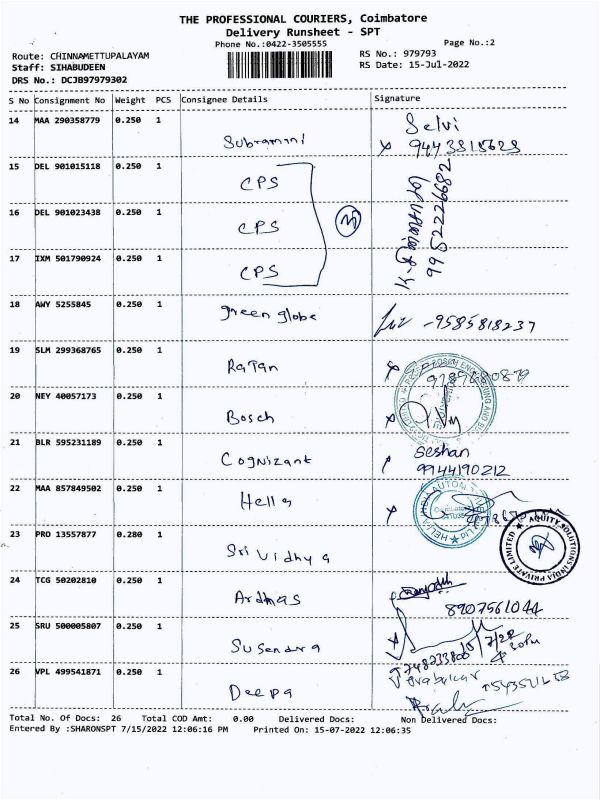 THE PROFESSIONAL COURIERS, Coimbatore
Delivery Runsheet - SPT
Phone No.:0422-3505555
Page No.:2
Route: CHINNAMETTUPALAYAM
Staff: SIHABUDEEN
DRS No.: DCJB97979302
RS No.: 979793
RS Date: 15-Jul-2022
S No Consignment No Weight PCS Consignee Details Signature
14 MAA 290358779 0.250 1 Subramani Selvi
9443515623
15 DEL 901015118 0.250 1 CPS
16 DEL 901023438 0.250 1 CPS 9952226682
17 IXM 501790924 0.250 1 CPS
18 AWY 5255845 0.250 1 green globe -9585818237
19 SLM 299368765 0.250 1 Ratan
20 NEY 40057173 0.250 1 Bosch
21 BLR 595231189 0.250 1 Cognizant Seshan
9944190212
22 MAA 857849502 0.250 1 Hella
HELLA INDIA AUTOM
23 PRO 13557877 0.280 1 Sri Vidhya
AQUITY SOLUTIONS INDIA PRIVATE LIMITED
24 TCG 50202810 0.250 1 Ardmas
8907561044
25 SRU 500005807 0.250 1 Susendra
26 VPL 499541871 0.250 1 Deepa
Total No. Of Docs: 26 Total COD Amt: 0.00 Delivered Docs: Non Delivered Docs:
Entered By :SHARONSPT 7/15/2022 12:06:16 PM Printed On: 15-07-2022 12:06:35